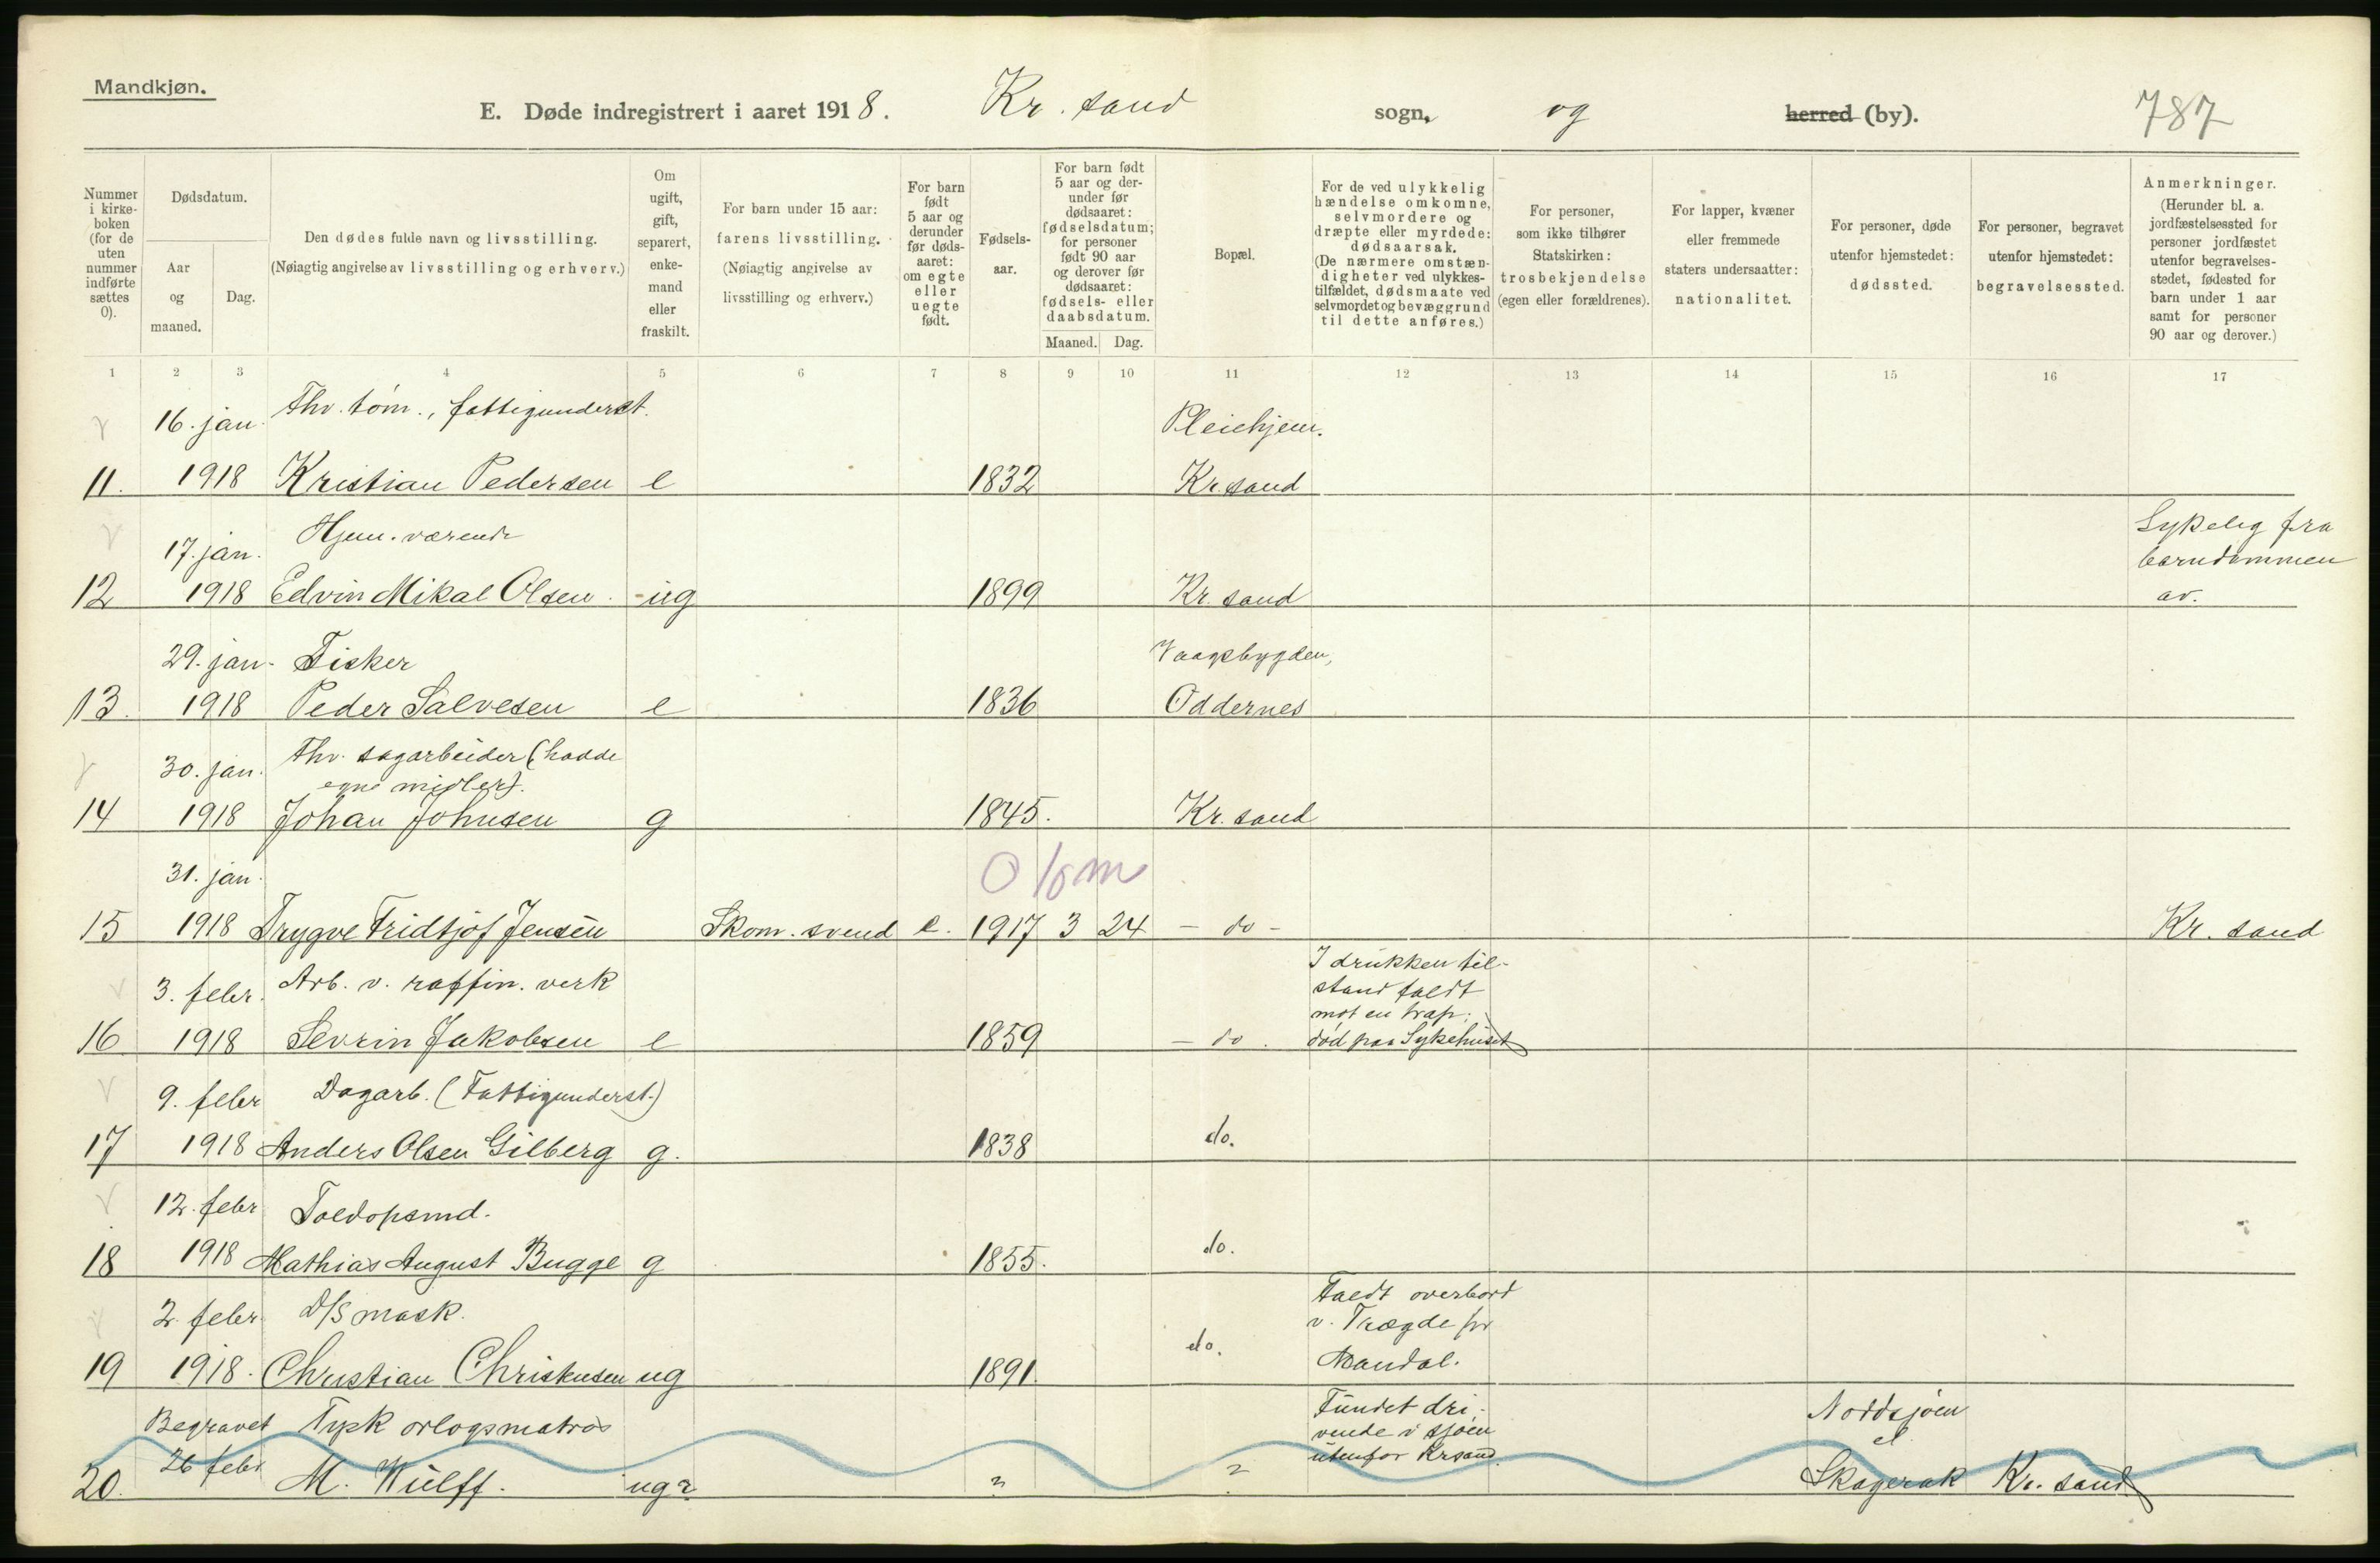 Mandkjøn.
E. Døde indregistrert i aaret 1918. Kr.sand sogn, og herred (by). 787
Nummer i kirke-boken (for de uten nummer indførte sættes 0).
Dødsdatum.
Aar og maaned.
Dag.
Den dødes fulde navn og livsstilling.
(Nøiagtig angivelse av livsstilling og erhverv.)
Om ugift, gift, separert, enke-mand eller fraskilt.
For barn under 15 aar:
farens livsstilling.
(Nøiagtig angivelse av
livsstilling og erhverv.)
For barn født 5 aar og derunder før døds-aaret: om egte eller uegte født.
Fødsels-aar.
For barn født 5 aar og der-under før dødsaaret: fødselsdatum; for personer født 90 aar og derover før dødsaaret: fødsels- eller daabsdatum.
Maaned. Dag.
Bopæl.
For de ved ulykkelig hændelse omkomne, selvmordere og dræpte eller myrdede: dødsaarsak. (De nærmere omstæn-digheter ved ulykkes-tilfældet, dødsmaate ved selvmordet og bevæggrund til dette anføres.)
For personer, som ikke tilhører Statskirken: trosbekjendelse (egen eller forældrenes).
For lapper, kvæner eller fremmede staters undersaatter: nationalitet.
For personer, døde utenfor hjemstedet: dødssted.
For personer, begravet utenfor hjemstedet: begravelsessted.
Anmerkninger. (Herunder bl. a. jordfæstelsessted for personer jordfæstet utenfor begravelses-stedet, fødested for barn under 1 aar samt for personer 90 aar og derover.)
1 2 3 4 5 6 7 8 9 10 11 12 13 14 15 16 17
16. jan. Fhv. tøm., fattigunderst. Pleiehjem.
11. 1918 Kristian Pedersen e 1832 Kr.sand
17. jan. Hjem.værende Sykelig fra
barndommen
12 1918 Edvin Mikal Olsen. ug 1899 Kr. sand av.
29. jan. Fisker Vaagsbygden,
13. 1918 Peder Salvesen e 1836 Oddernes
30. jan. Fhv. sagarbeider (hadde
egne midler).
14 1918 Johan Johnsen g 1845. Kr. sand
31. jan. 0 10m
15 1918 Trygve Fridtjof Jensen Skom. svend e. 1917 3 24 - do - Kr. sand
3. febr. Arb. v. raffin. verk I drukken til-
stand faldt
mot en trap;
16 1918 Sevrin Jakobsen e 1859 - do. død paa Sykehuset
9. febr Dagarb. (Fattigunderst.)
17 1918 Anders Olsen Gilberg g. 1838 do.
12. febr Toldopsmd.
18 1918 Mathias August Bugge g 1855. do.
2. febr. D/S mask. Faldt overbord
v. Trægde pr
19 1918. Christian Christensen ug 1891. do. Mandal.
Begravet Tysk orlogsmatros Fundet dri- Nordsjøen
vende i sjøen el.
20. 26 febr M. Wülff. ug? ? ? utenfor Krsand. Skagerak Kr. sand